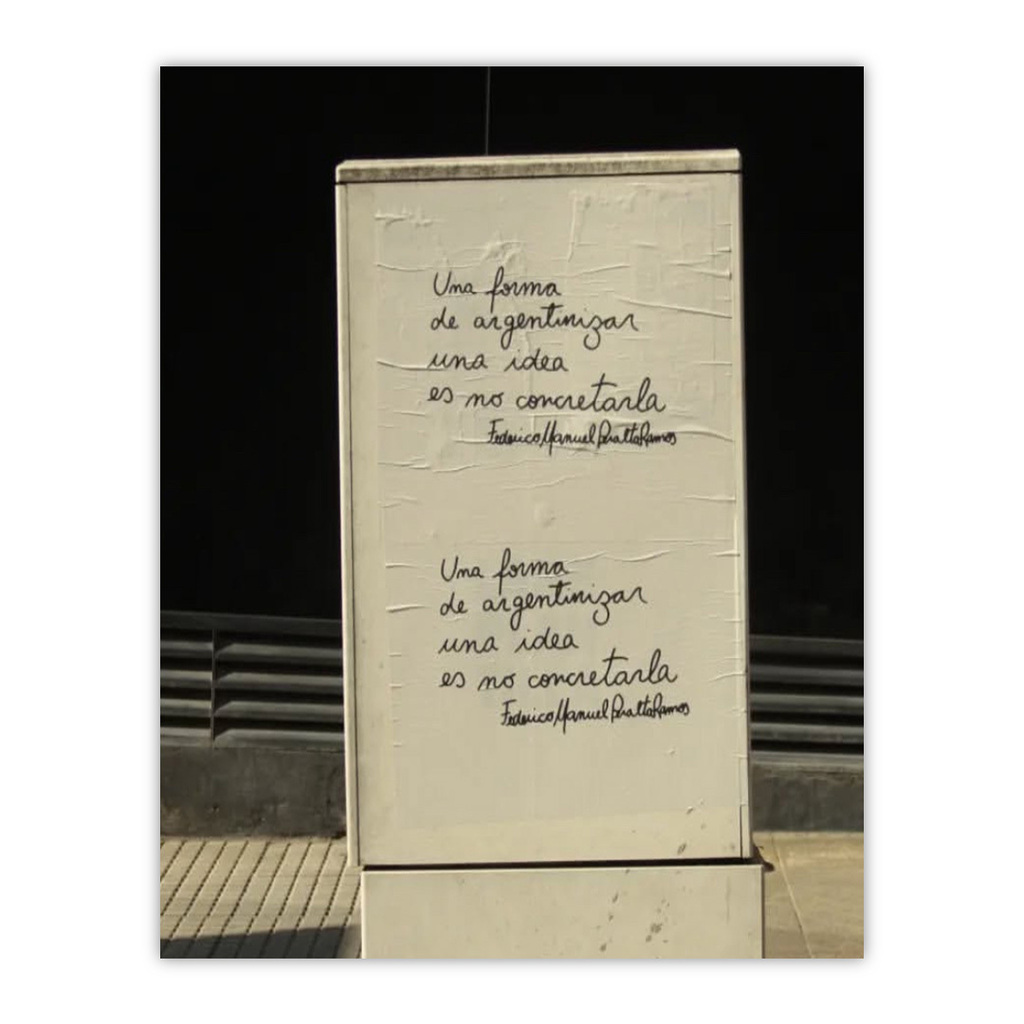 Una forma
de argentinizar
una idea
es no concretarla
Federico Manuel Peralta Ramos
Una forma
de argentinizar
una idea
es no concretarla
Federico Manuel Peralta Ramos